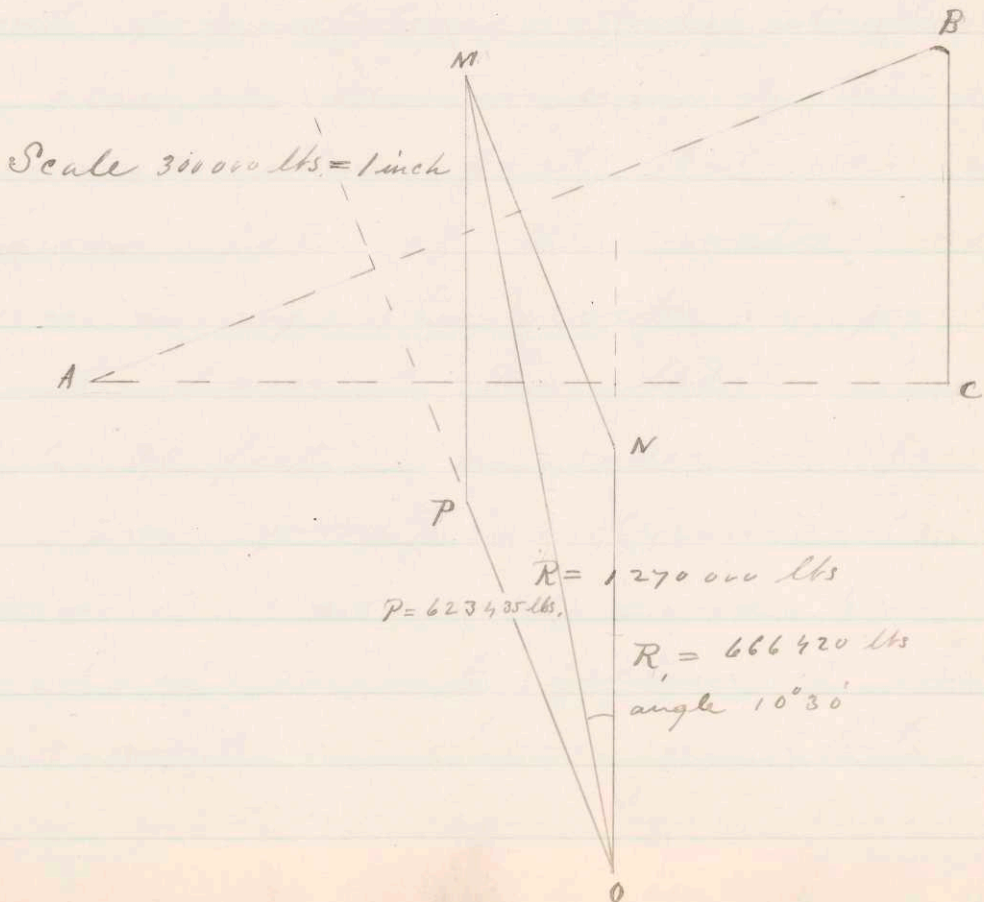 B
M
Scale 300000 lbs. = 1 inch
A
C
N
P
R = 1270000 lbs
P = 623435 lbs.
R, = 666420 lbs
angle 10°30'
O